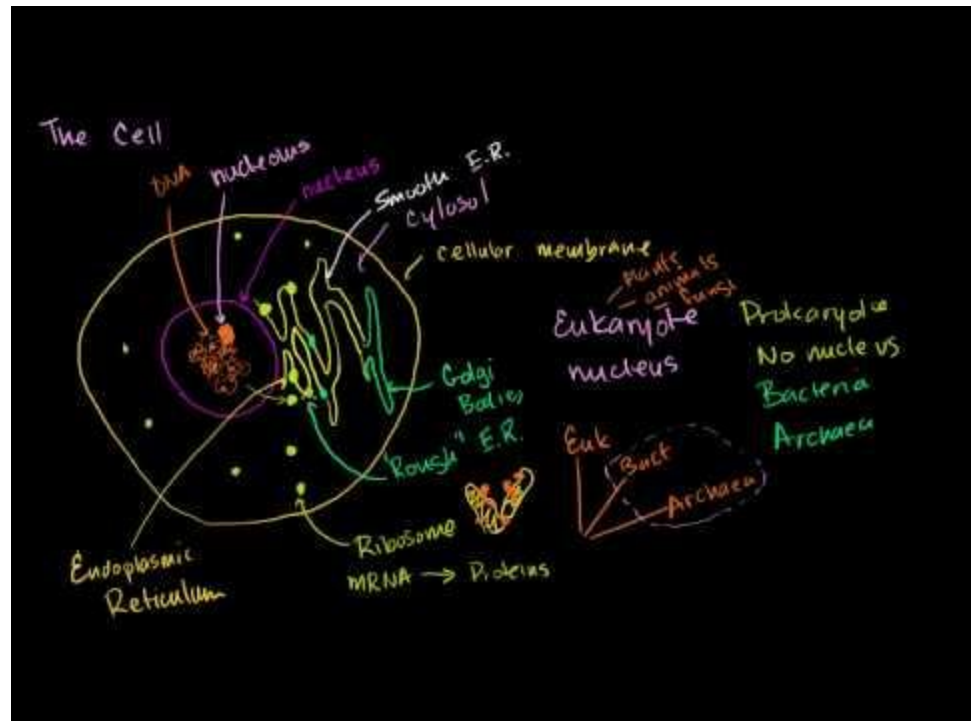 The Cell
DNA
nucleolus
nucleus
Smooth E.R.
Cytosol
cellular membrane
Plants
animals
fungi
Eukaryote
nucleus
Prokaryote
No nucleus
Bacteria
Archaea
Golgi
Bodies
"Rough" E.R.
Euk
Bact
Archaea
Ribosome
mRNA → Proteins
Endoplasmic
Reticulum